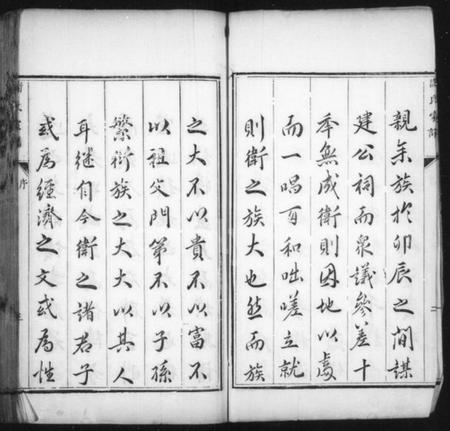 親弟族於卯辰之間謀
建公祠而衆議參差十
年無成衛則因地以處
而一唱百和咄嗟立就
則衛之族大也然而族
之大不以貴不以富不
以祖父門第不以子孫
繁衍族之大大以其人
耳继自今衛之諸君子
或為經濟之文或為性
序